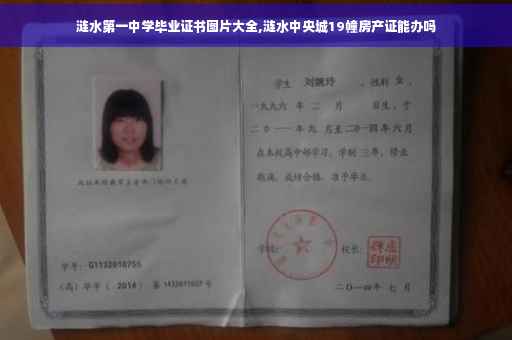 涟水第一中学毕业证书图片大全,涟水中央城19幢房产证能办吗
学生 刘婉玲 ,性别 女 ,
一九九六 年 二 月 日生,于
二〇一一年九 月至二〇一四年六月
在本校高中部学习,学制 三年,修业
期满,成绩合格,准予毕业。
学校: 校长:
二〇一四年 七 月
学号: G1132010755
(高)毕字( 2014 )第 1432011027 号